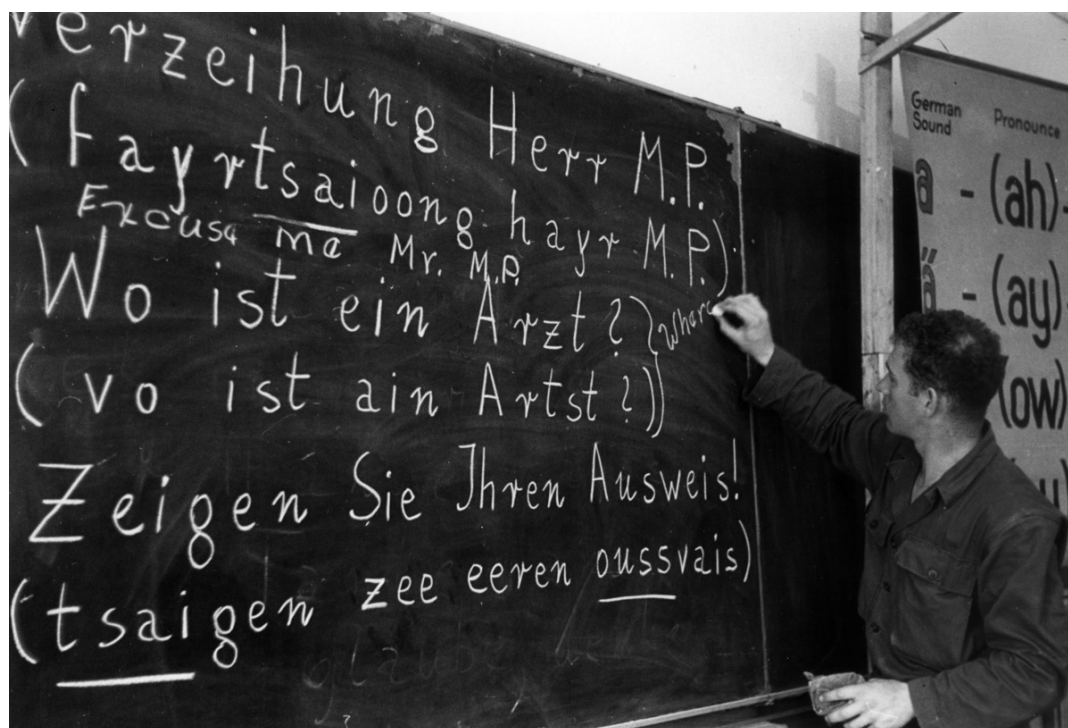 Verzeihung Herr M.P.
(fayrtsaioong hayr M.P.)
Excuse me Mr. M.P.
Wo ist ein Arzt?
(vo ist ain Artst?)
Where
Zeigen Sie Ihren Ausweis!
(tsaigen zee eeren oussvais)
glaube
German Sound Pronounce
a - (ah)-
ä - (ay)-
(ow)